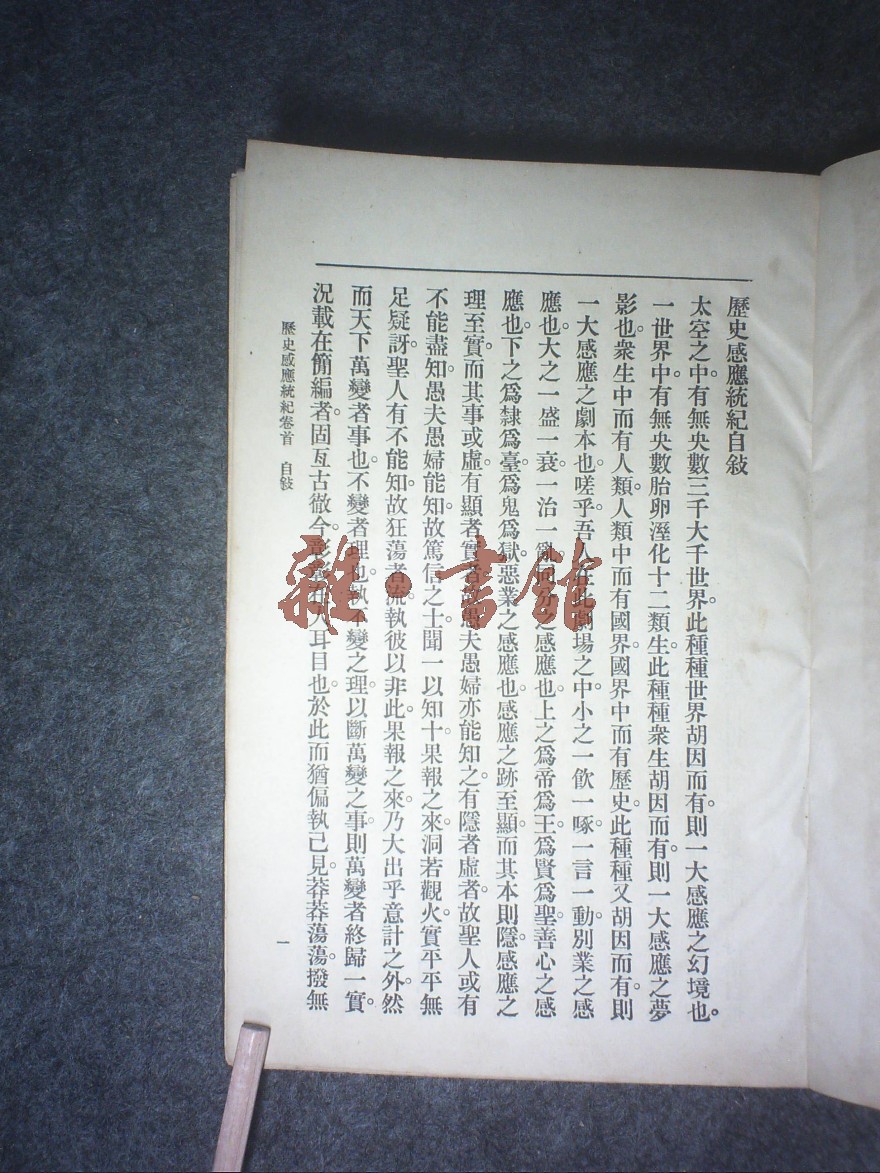 歷史感應統紀自敍
太空之中。有無央數三千大千世界。此種種世界胡因而有。則一大感應之幻境也。
一世界中。有無央數胎卵溼化十二類生。此種種衆生胡因而有。則一大感應之夢
影也。衆生中而有人類。人類中而有國界。國界中而有歷史。此種種又胡因而有。則
一大感應之劇本也。嗟乎。吾人在此劇場之中。小之一飲一啄。一言一動。別業之感
應也。大之一盛一衰。一治一亂。同分之感應也。上之爲帝爲王。爲賢爲聖。善心之感
應也。下之爲隸爲臺。爲鬼爲獄。惡業之感應也。感應之跡至顯。而其本則隱。感應之
理至實。而其事或虛。有顯者實者。故愚夫愚婦亦能知之。有隱者虛者。故聖人或有
不能盡知。愚夫愚婦能知。故篤信之士。聞一以知十。果報之來。洞若觀火。實平平無
足疑訝。聖人有不能知。故狂蕩者流。執彼以非此。果報之來。乃大出乎意計之外。然
而天下萬變者事也。不變者理也。執不變之理。以斷萬變之事。則萬變者終歸一實。
況載在簡編者。固亙古徹今。人耳目也。於此而猶偏執己見。莽莽蕩蕩。撥無
歷史感應統紀卷首 自敍
一
雜·書館